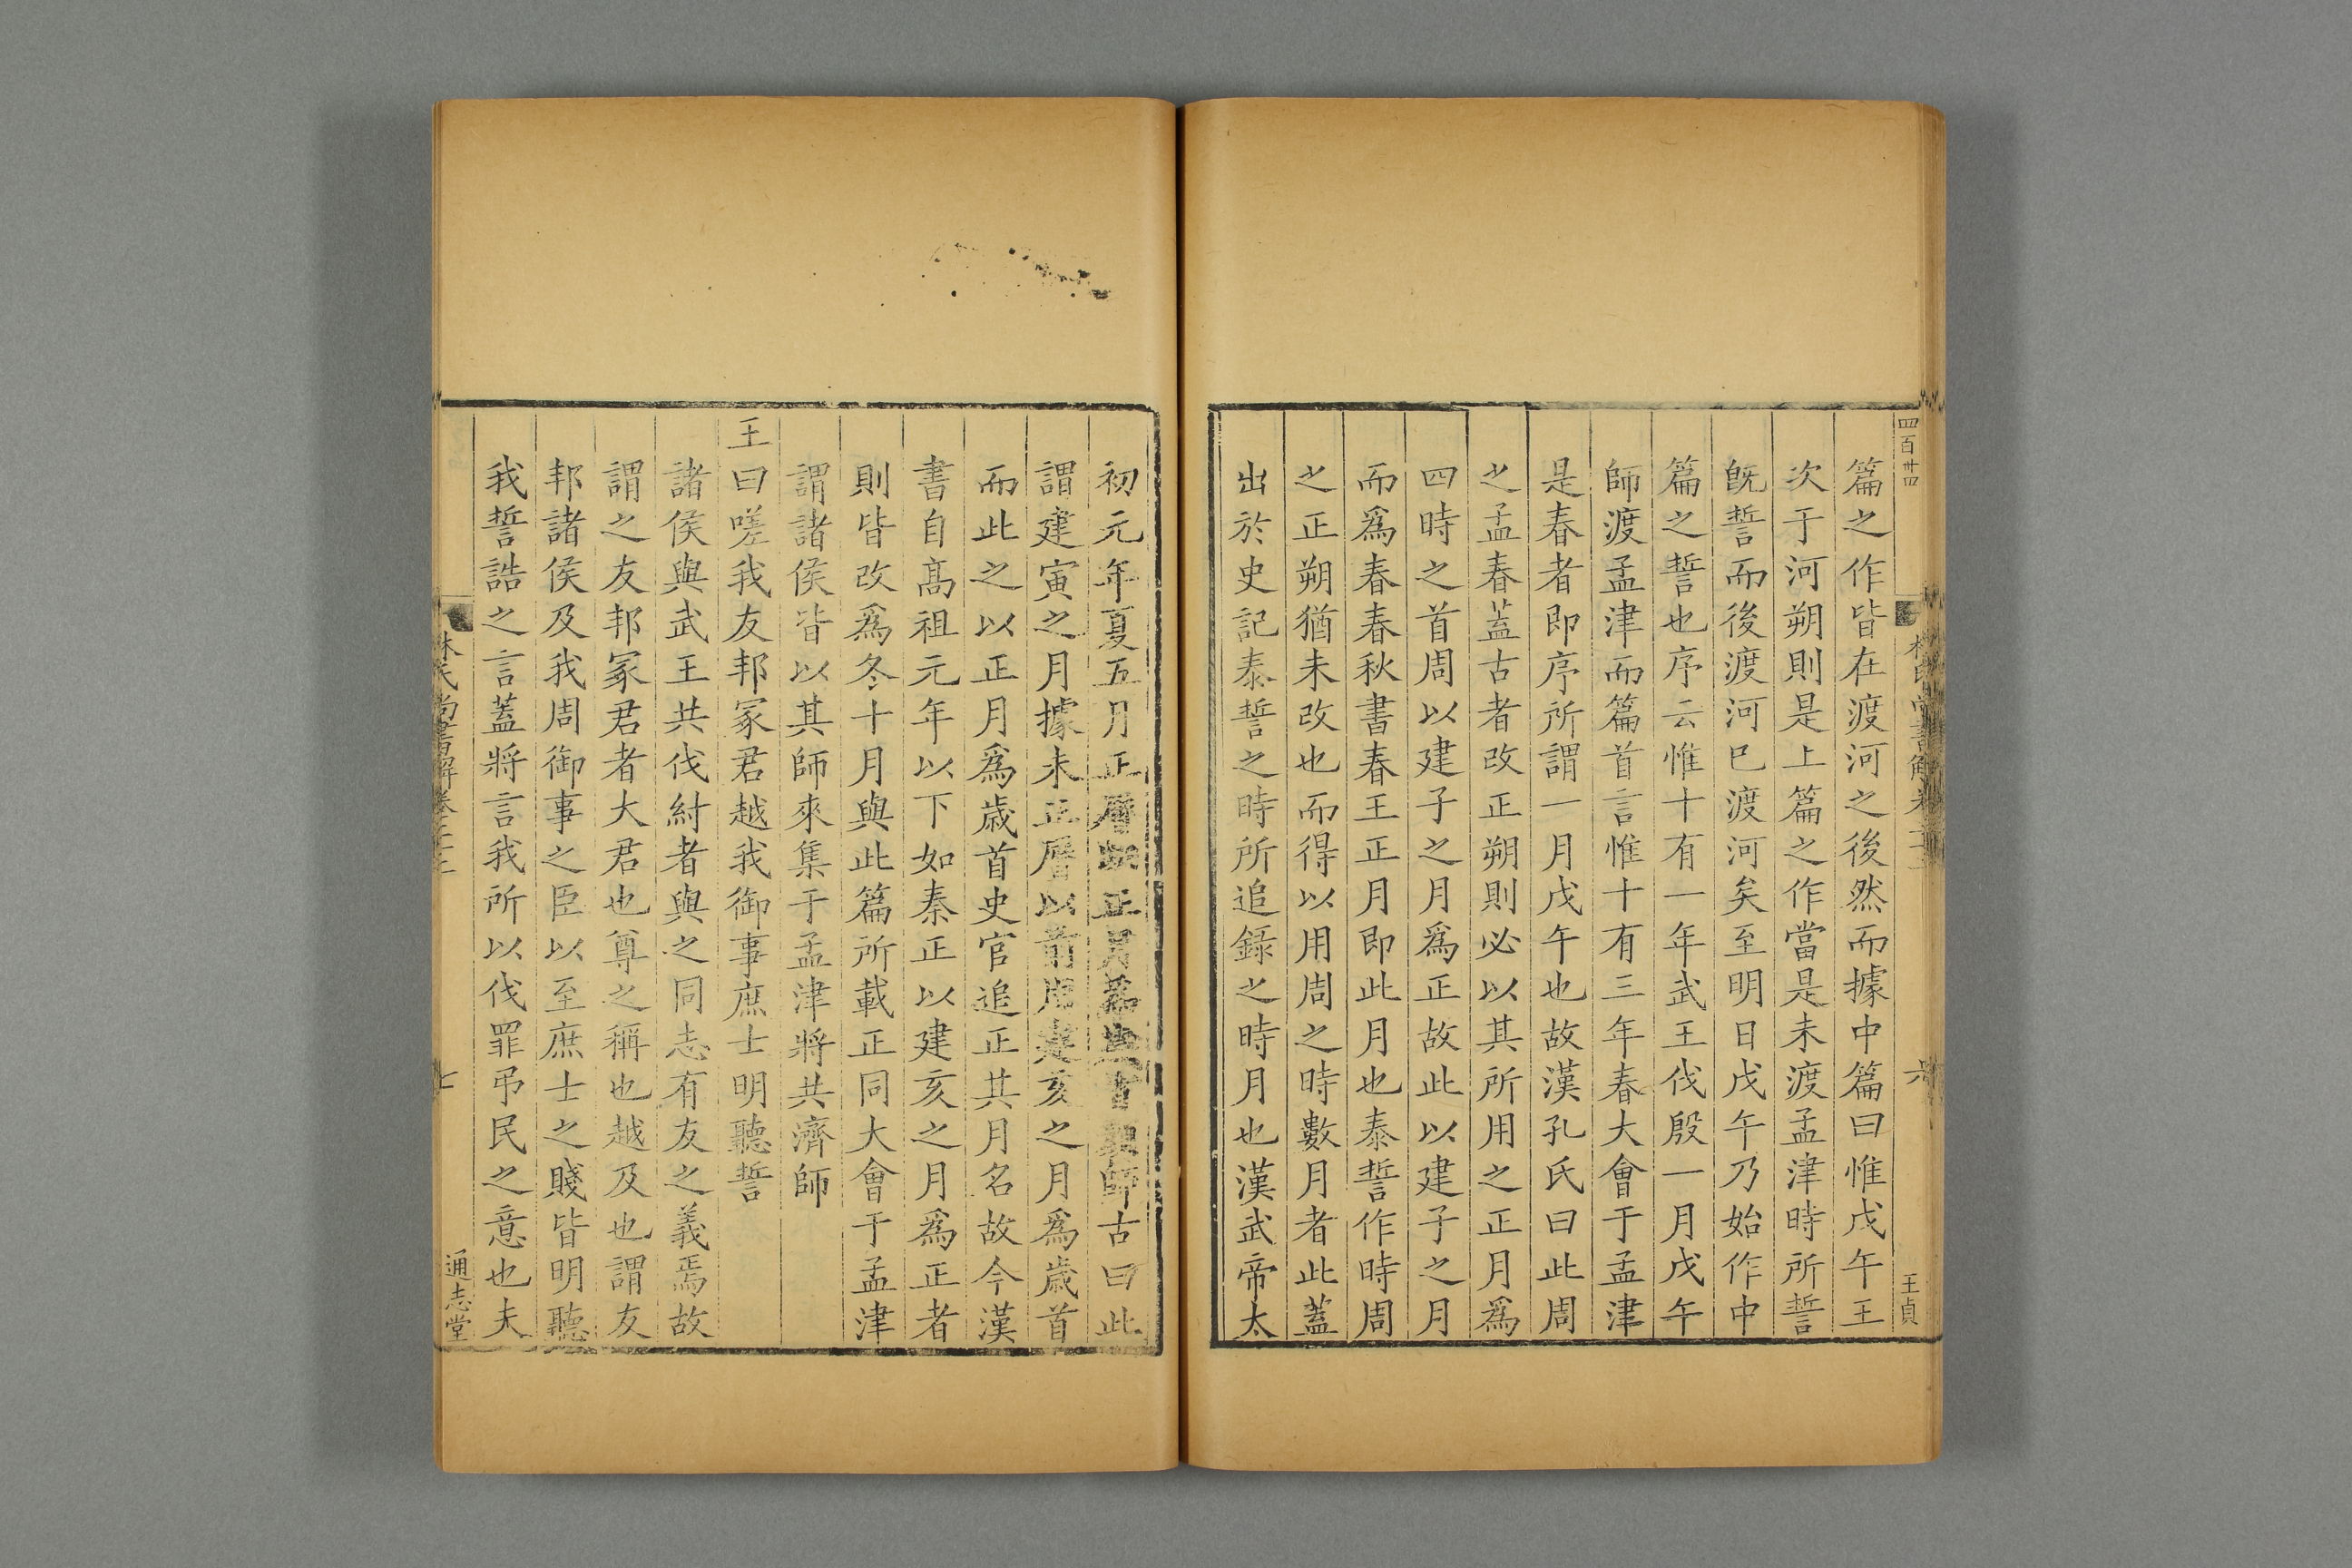 四百卅四
六
王貞
篇之作皆在渡河之後然而據中篇曰惟戊午王
次于河朔則是上篇之作當是未渡孟津時所誓
旣誓而後渡河巳渡河矣至明日戊午乃始作中
篇之誓也序云惟十有一年武王伐殷一月戊午
師渡孟津而篇首言惟十有三年春大會于孟津
是春者即序所謂一月戊午也故漢孔氏曰此周
之孟春蓋古者改正朔則必以其所用之正月爲
四時之首周以建子之月爲正故此以建子之月
而爲春春秋書春王正月即此月也泰誓作時周
之正朔猶未改也而得以用周之時數月者此蓋
出於史記泰誓之時所追錄之時月也漢武帝太
初元年夏五月正曆正月爲師古曰此
謂建寅之月據未正曆以前用建亥之月爲歲首
而此之以正月爲歲首史官追正其月名故今漢
書自高祖元年以下如秦正以建亥之月爲正者
則皆改爲冬十月與此篇所載正同大會于孟津
謂諸侯皆以其師來集于孟津將共濟師
王曰嗟我友邦冢君越我御事庶士明聽誓
諸侯與武王共伐紂者與之同志有友之義焉故
謂之友邦冢君者大君也尊之稱也越及也謂友
邦諸侯及我周御事之臣以至庶士之賤皆明聽
我誓誥之言蓋將言我所以伐罪弔民之意也夫
林氏尚書解卷
七
通志堂